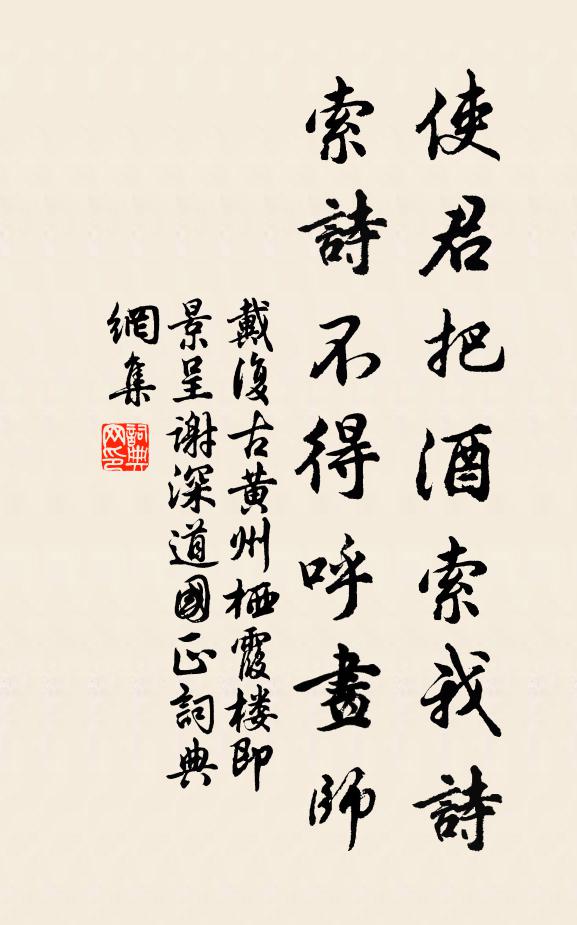 使君把酒索我詩
索詩不得呼畫師
戴復古黃州栖霞楼即
景呈謝深道國正詞典
網集
詞典網印